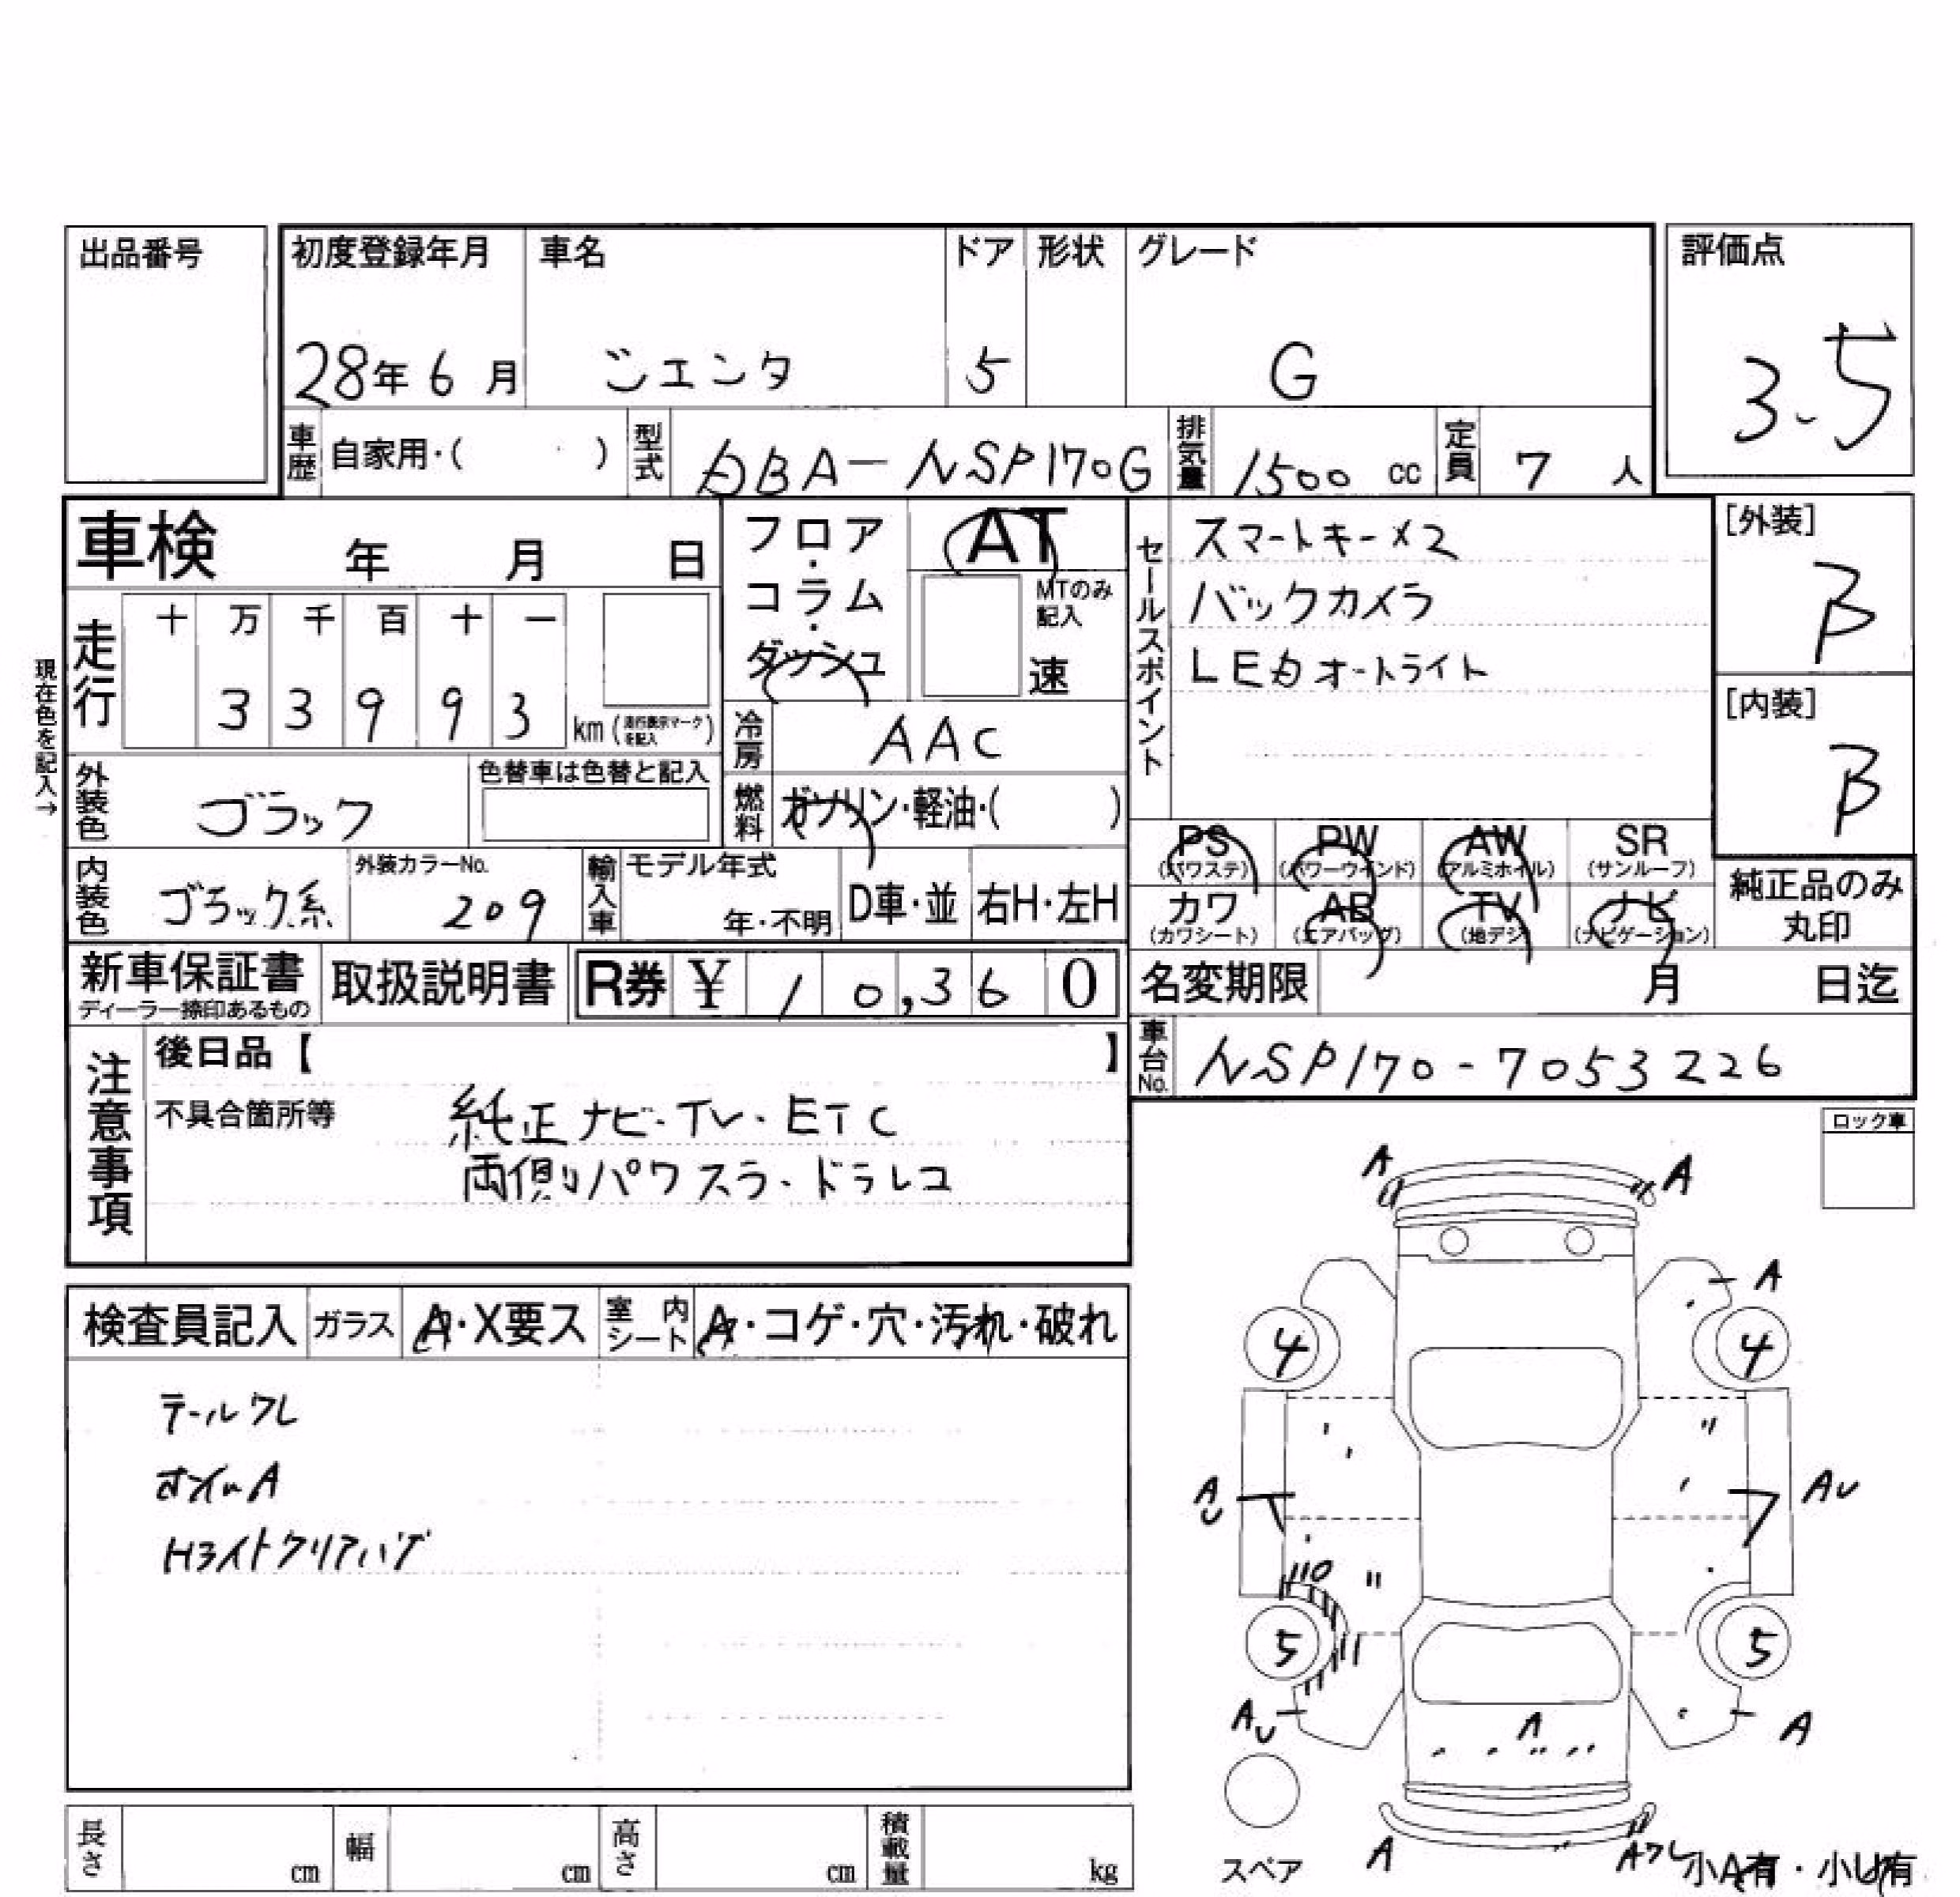 出品番号
初度登録年月 車名 ドア 形状 グレード 評価点
28年6月 シエンタ 5 G 3.5
車歴 自家用・( ) 型式 DBA-NSP170G 排気量 1500 cc 定員 7 人
車検 年 月 日
フロア・コラム・ダッシュ AT
MTのみ記入
速
セールスポイント
スマートキー×2
バックカメラ
LEDオートライト
[外装]
B
[内装]
B
現在色を記入→
走行 十 万 千 百 十 一
3 3 9 9 3 km (走行表示マークを記入)
冷房 AAC
外装色 ブラック 色替車は色替と記入
燃料 ガソリン・軽油・( )
PS (パワステ) PW (パワーウインド) AW (アルミホイル) SR (サンルーフ)
カワ (カワシート) AB (エアバッグ) TV (地デジ) ナビ (ナビゲーション)
純正品のみ丸印
内装色 ブラック系 外装カラーNo. 209 輸入車 モデル年式 年・不明 D車・並 右H・左H
新車保証書 ディーラー捺印あるもの 取扱説明書 R券 ¥ 10,360
名変期限 月 日迄
車台No. NSP170-7053226
注意事項
後日品【 】
不具合箇所等 純正ナビ・TV・ETC
両側パワスラ・ドラレコ
ロック車
検査員記入 ガラス A・X要ス 室内シート A・コゲ・穴・汚れ・破れ
テールワレ
ホイルA
Hライトクリアハゲ
A A
A
4 4
AU AU
5 5
AU A A
スペア A Aワレ 小A有・小U有
長さ cm 幅 cm 高さ cm 積載量 kg